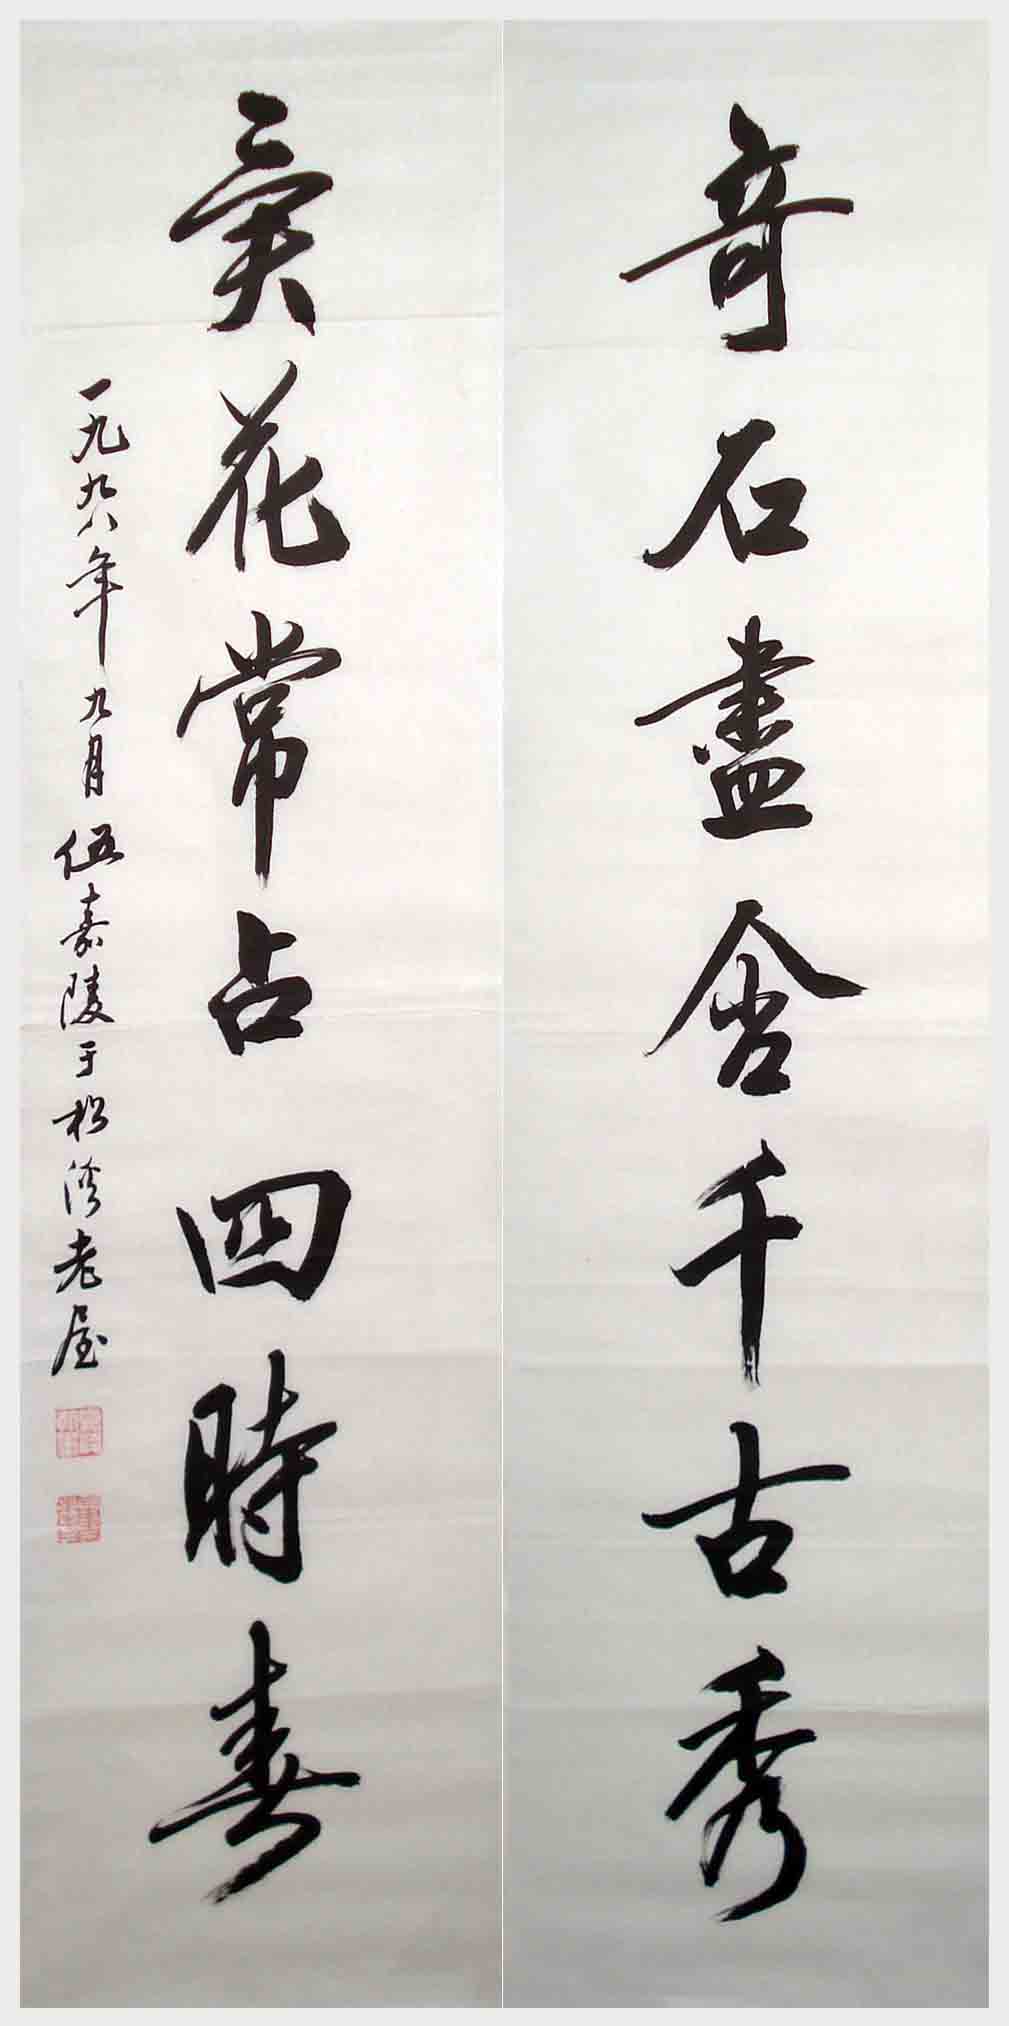 奇石盡含千古秀
異花常占四時春
一九九八年九月伍嘉陵于松湾老屋